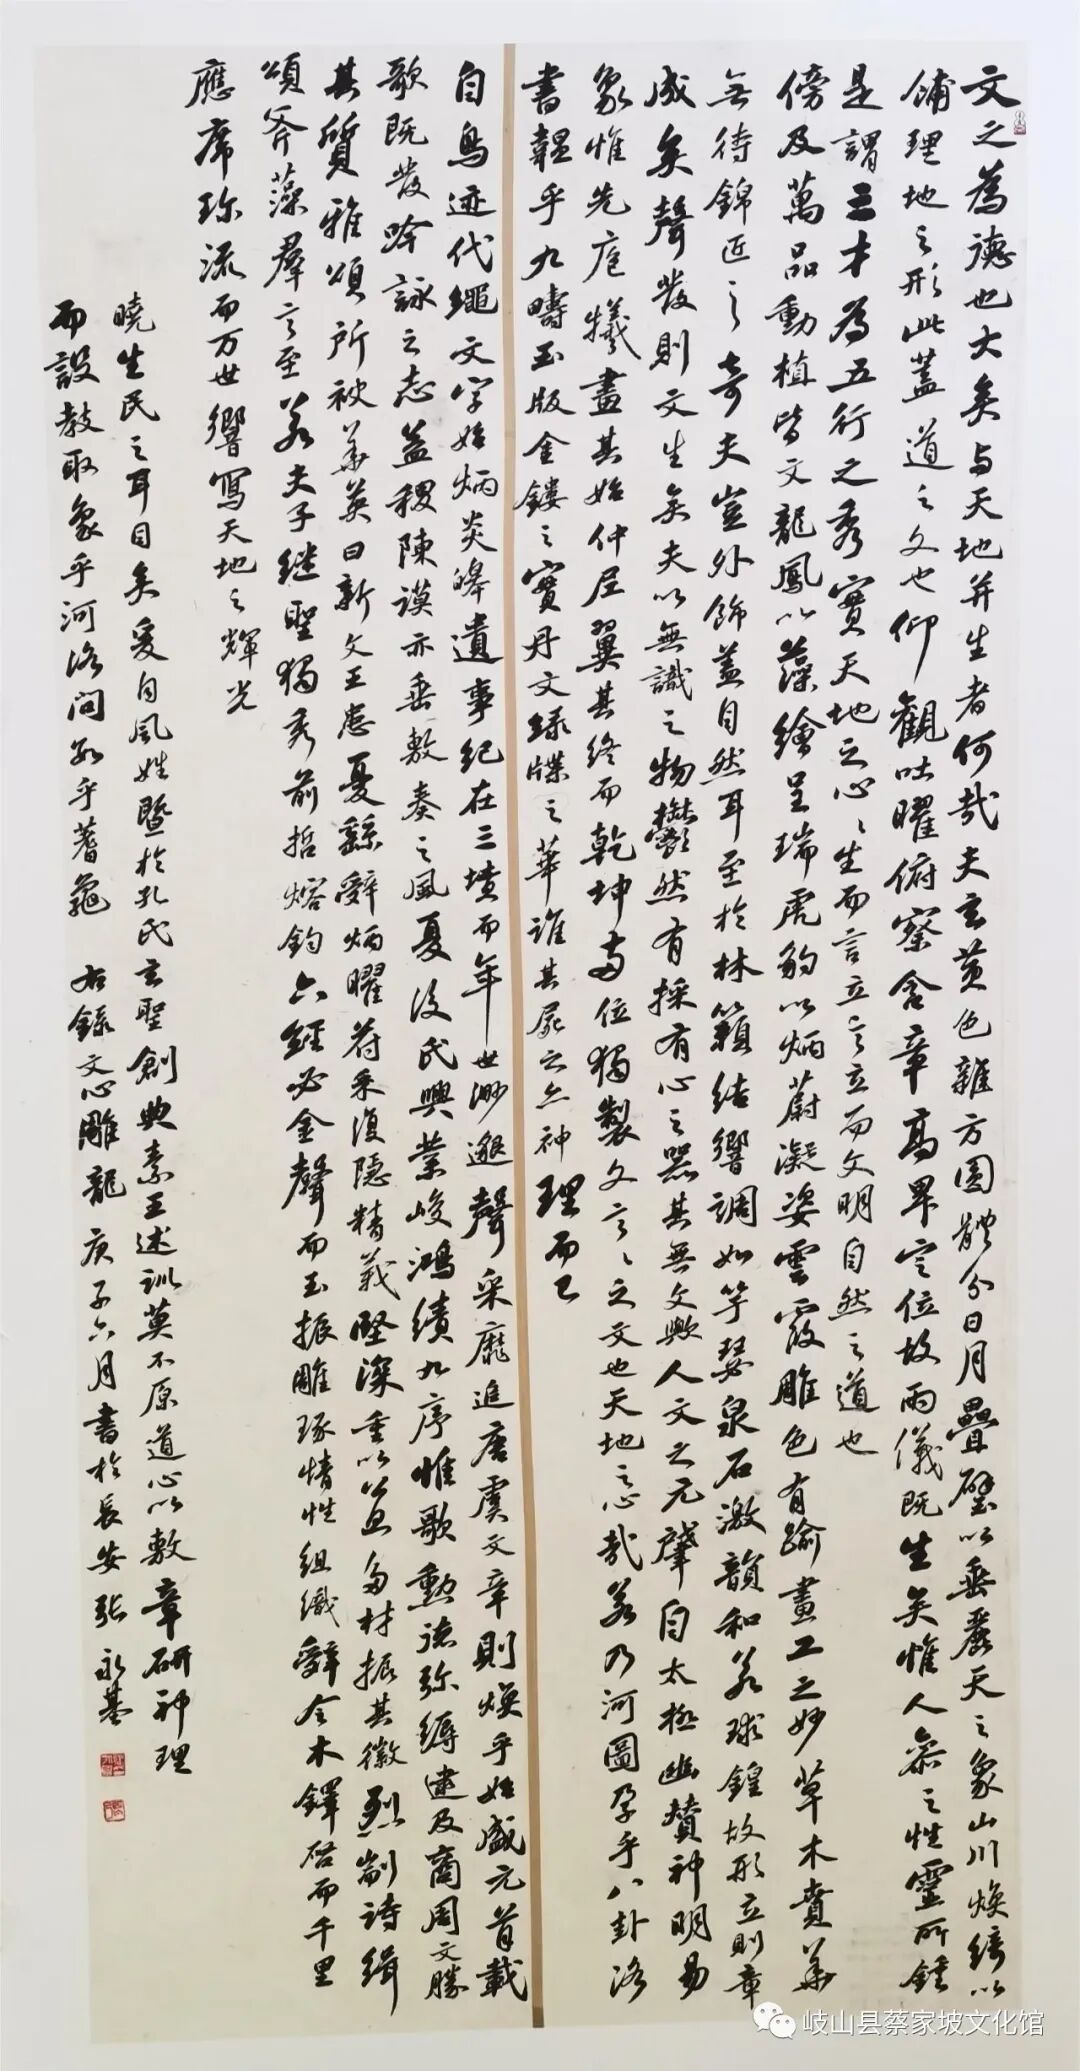 文之為德也大矣与天地并生者何哉夫玄黃色雜方圓體分日月疊璧以垂麗天之象山川煥綺以
鋪理地之形此蓋道之文也仰觀吐曜俯察含章高卑定位故兩儀既生矣惟人叅之性靈所鍾
是謂三才為五行之秀實天地之心〻生而言立言立而文明自然之道也
傍及萬品動植皆文龍鳳以藻繪呈瑞虎豹以炳蔚凝姿雲霞雕色有踰畫工之妙草木賁華
無待錦匠之奇夫豈外飾蓋自然耳至於林籟結響調如竽瑟泉石激韻和若球鍠故形立則章
成矣聲發則文生矣夫以無識之物鬱然有採有心之器其無文歟人文之元肇自太極幽贊神明易
象惟先庖犧畫其始仲尼翼其終而乾坤兩位獨製文言〻之文也天地之心哉若乃河圖孕乎八卦洛
書韞乎九疇玉版金鏤之實丹文綠牒之華誰其屍之亦神理而已
自鳥迹代繩文字始炳炎皞遺事紀在三墳而年世渺邈聲采靡追唐虞文章則煥乎始盛元首載
歌既發吟詠之志益稷陳謨亦垂敷奏之風夏后氏興業峻鴻績九序惟歌勳德弥縟逮及商周文勝
其質雅頌所被華英日新文王患憂繇辭炳曜符采復隱精義堅深重以公旦多材振其徽烈制詩緝
頌斧藻群言至若夫子継聖獨秀前哲熔鈞六經必金聲而玉振雕琢情性組織辭令木鐸啓而千里
應席珍流而万世響寫天地之輝光
曉生民之耳目矣爰自風姓暨於孔氏玄聖創典素王述訓莫不原道心以敷章研神理
而設教取象乎河洛問數乎蓍龜 右錄文心雕龍 庚子六月書於長安張永基
岐山县蔡家坡文化馆